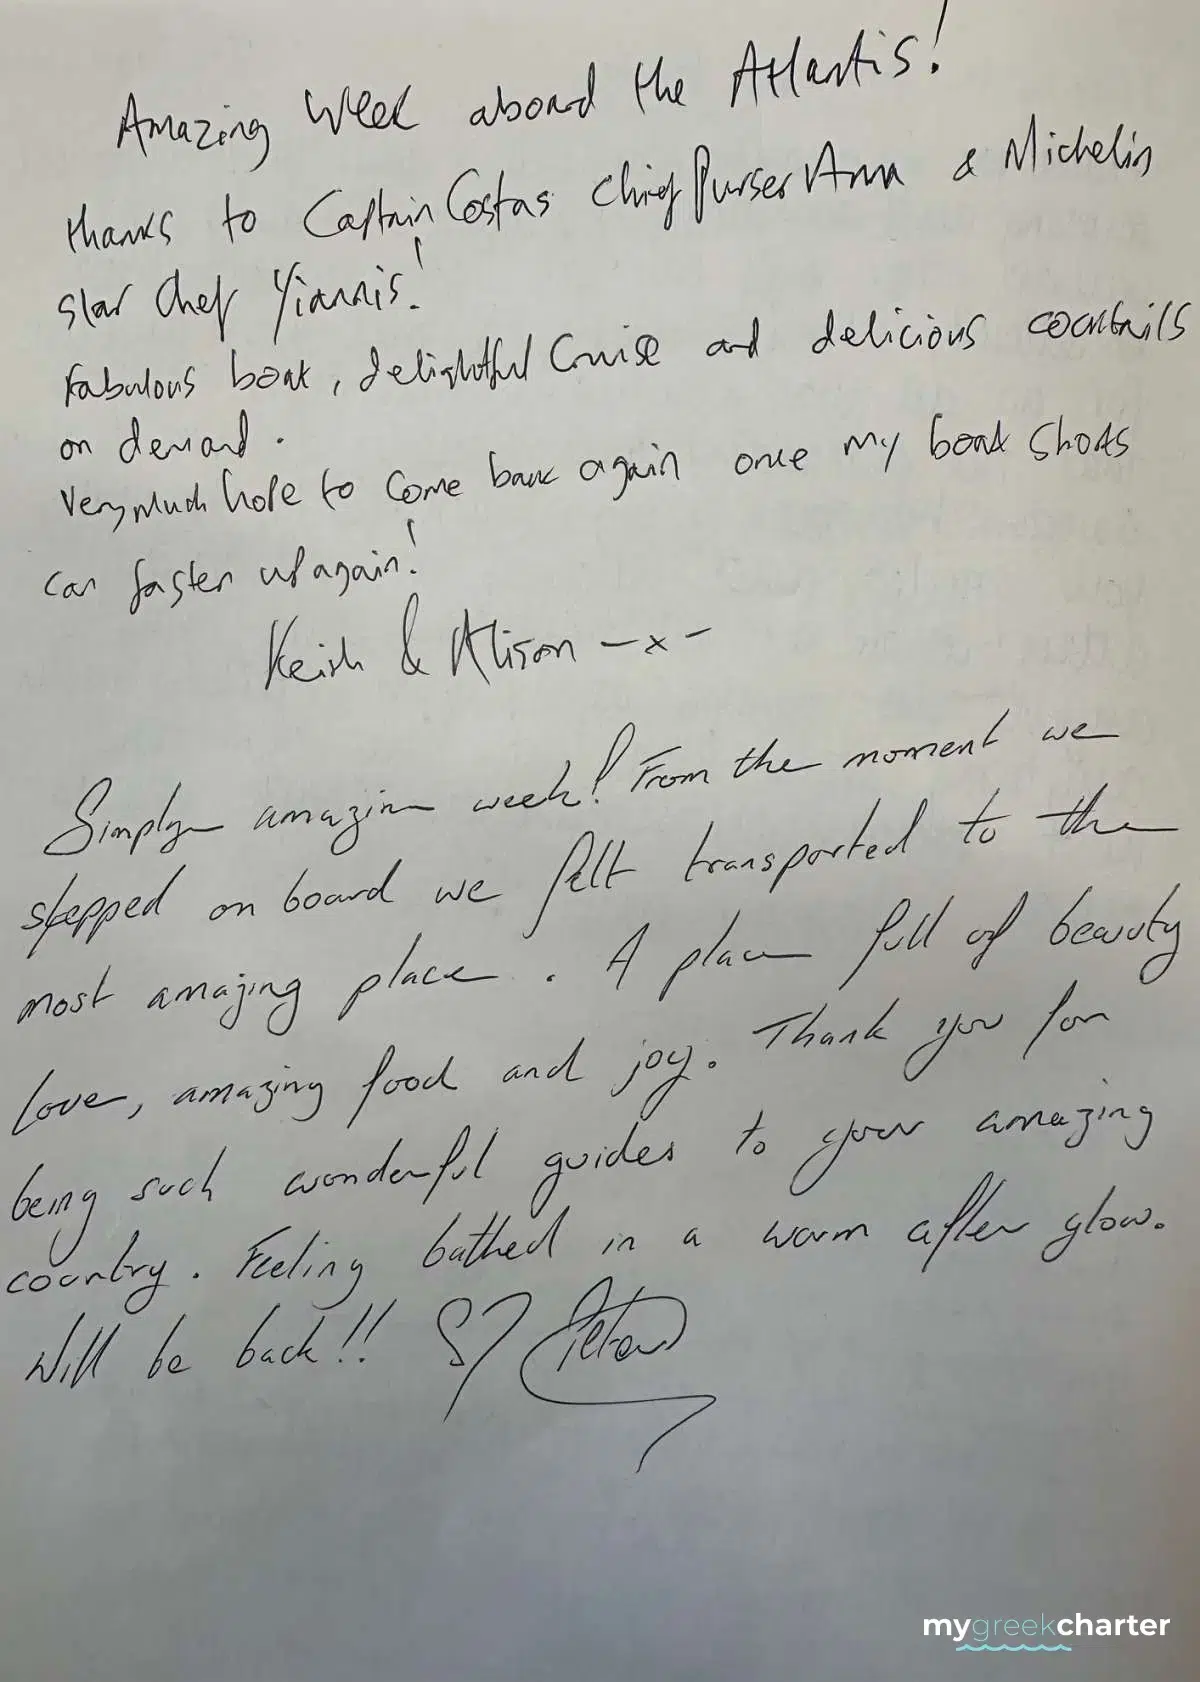 Amazing Week aboard the Atlantis!
thanks to Captain Costas Chief Purser Anna & Michelin
star Chef Yiannis!
Fabulous boat, delightful Cruise and delicious cocktails
on demand.
Very much hope to come back again once my boat shorts
can fasten up again!
& Alison -x-
Simply amazing week! From the moment we
stepped on board we felt transported to the
most amazing place. A place full of beauty
love, amazing food and joy. Thank you for
being such wonderful guides to your amazing
country. Feeling bathed in a warm after glow.
Will be back!!
mygreekcharter